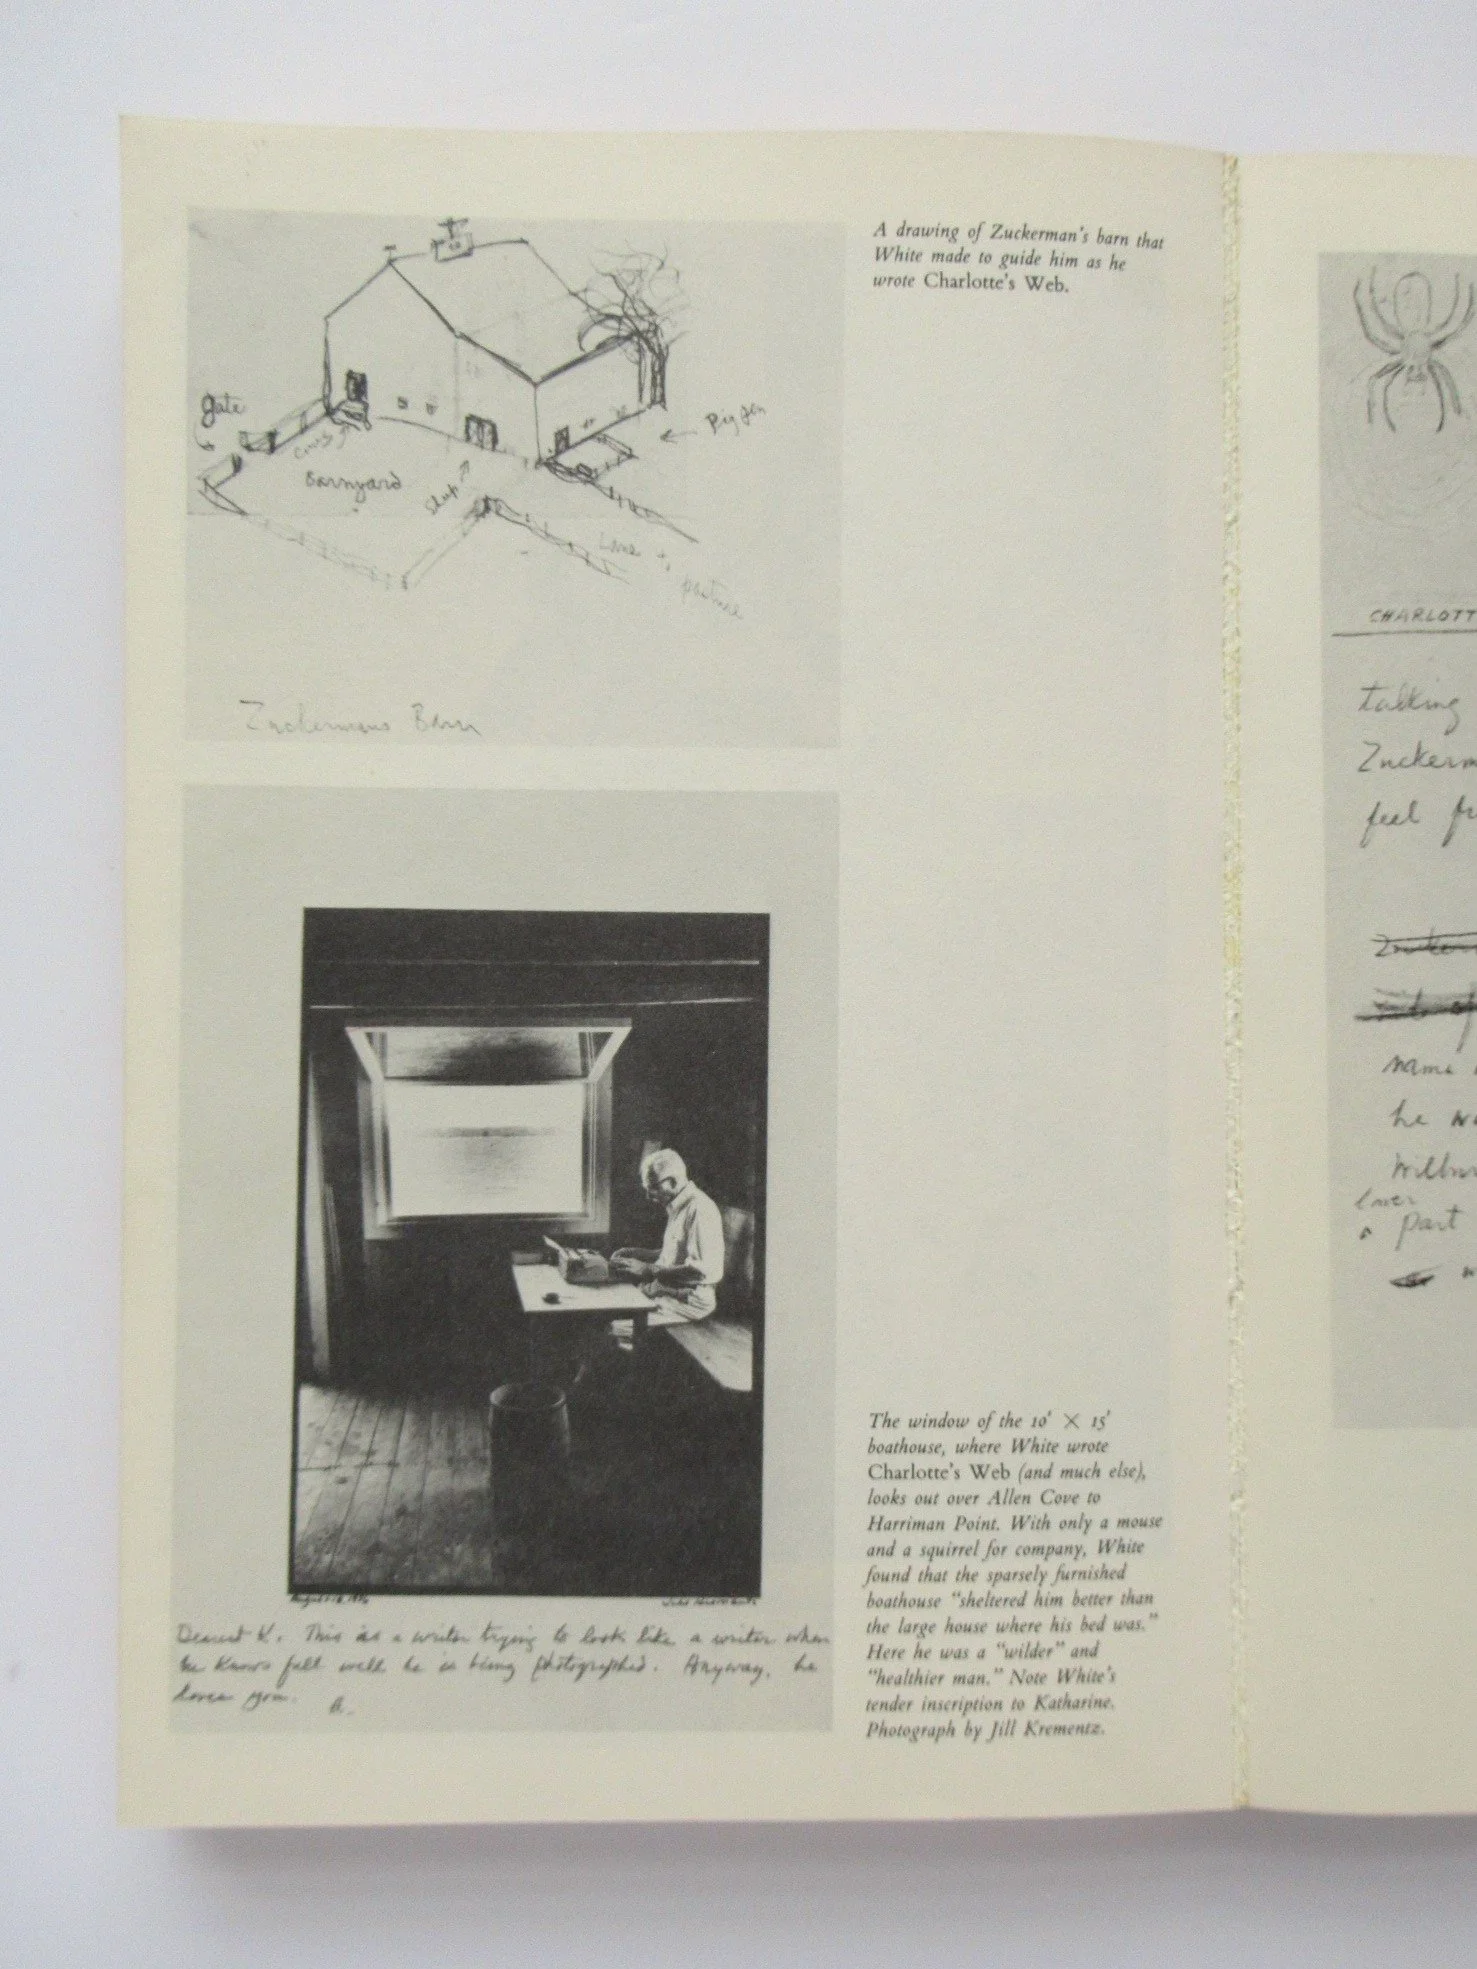 A drawing of Zuckerman's barn that
White made to guide him as he
wrote Charlotte's Web.
gate
Cows
Barnyard
Sheep
Pig pen
Lane to
pasture
Zuckermans Barn
The window of the 10' × 15'
boathouse, where White wrote
Charlotte's Web (and much else),
looks out over Allen Cove to
Harriman Point. With only a mouse
and a squirrel for company, White
found that the sparsely furnished
boathouse "sheltered him better than
the large house where his bed was."
Here he was a "wilder" and
"healthier man." Note White's
tender inscription to Katharine.
Photograph by Jill Krementz.
Jill Krementz
Dearest K. This is a writer trying to look like a writer when
he knows full well he is being photographed. Anyway, he
loves you.
A.
CHARLOTT
talking
Zuckerm
feel
name
he
Wilbur
lower
a part